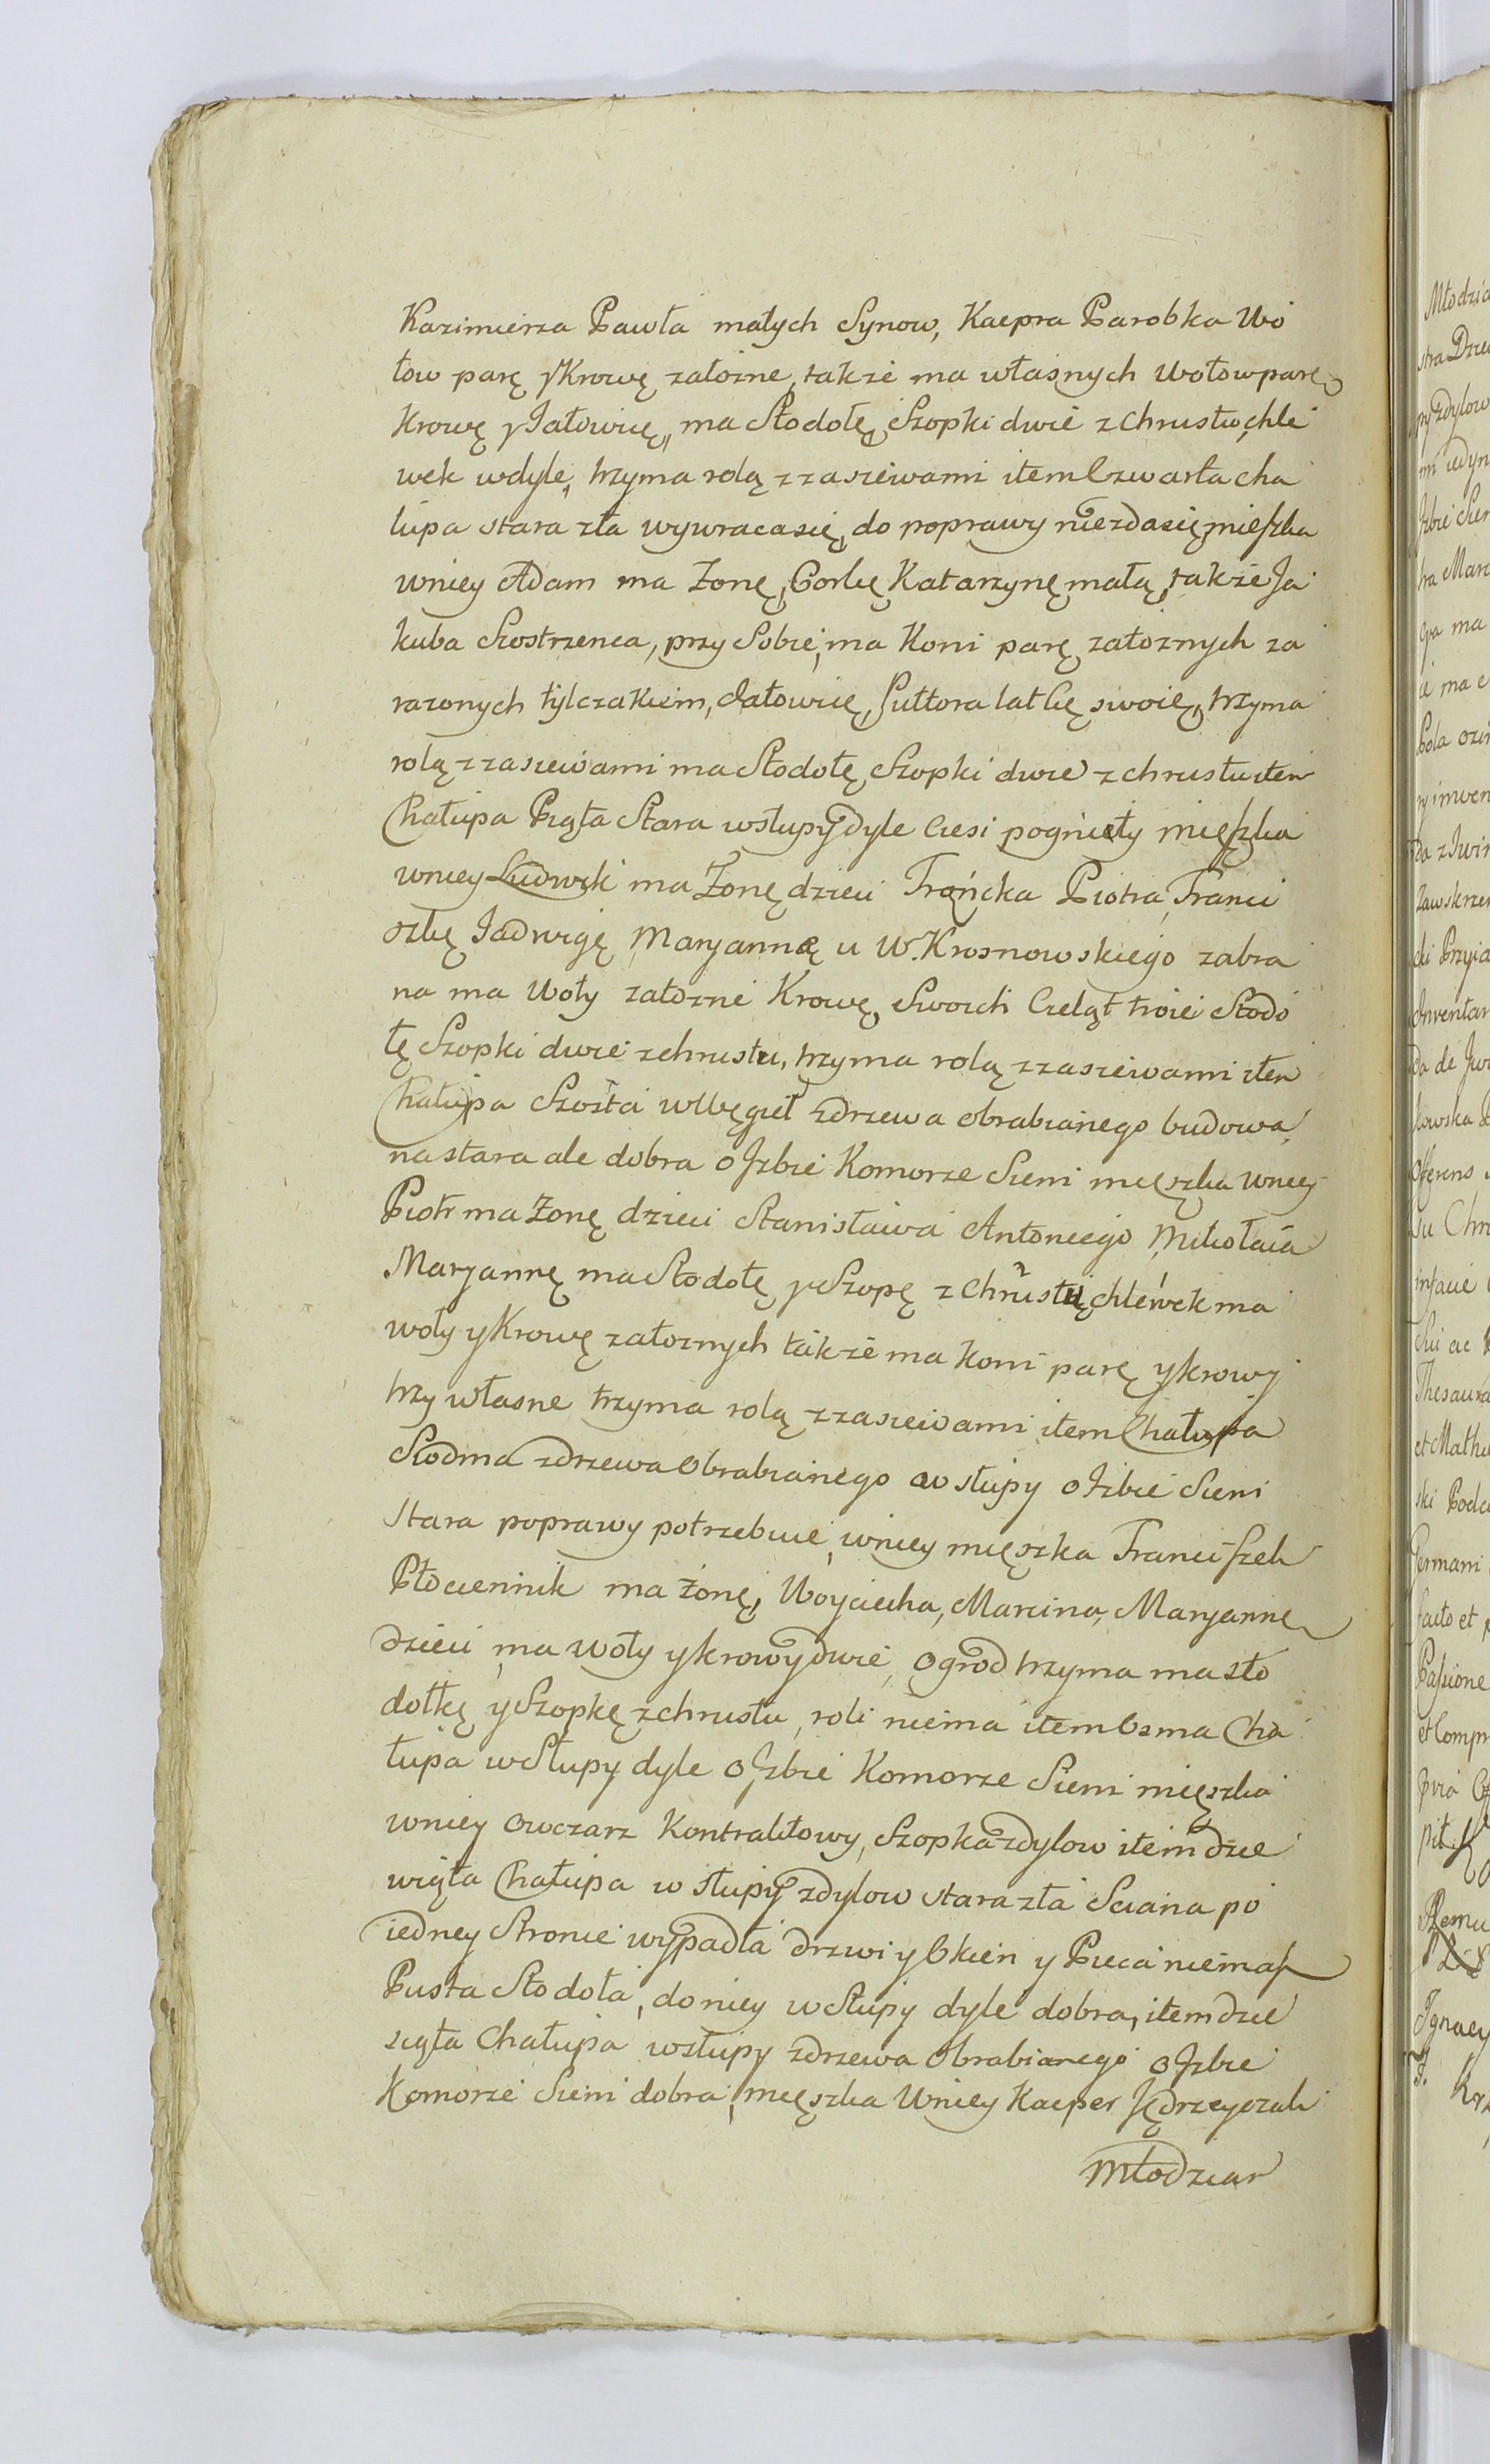 Kazimierza Pawła małych Synow, Kacpra Parobka Wo
łow parę y Krowę załozne, także ma własnych Wołow parę
Krowę y Jałowicę, ma Stodołę, Szopki dwie z Chrustu, chle
wek w dyle, trzyma rolą z zasiewami item Czwarta cha
łupa stara zła wywraca się, do poprawy niezda się, mieszka
w niey Adam ma Zonę, Corkę Katarzynę małą, także Ja
kuba Siostrzenca, przy Sobie, ma Koni parę załoznych za
razonych tylczakiem, Jałowicę, Połtora latkę swoię, trzyma
rolą z zasiewami ma Stodołę, Szopki dwie z chrustu item
Chałupa Piąta Stara w słupy dyle Ciesi pogniеły mięszka
w niey Ludwik ma Zonę dzieci Fra Piotra, Franci
szkę Jadwigę Maryannę u W. Krosnowskiego zabra
na ma Woły załozne Krowę, Swoich Cieląt troie Stodo
łę Szopki dwie z chrustu, trzyma rolą z zasiewami item
Chałupa Szosta w Węgieł z drzewa obrabianego budowa
na stara ale dobra o Jzbie Komorze Sieni mięszka w niey
Piotr ma Zonę dzieci Stanisława Antoniego Mikołaia
Maryannę ma Stodołę y Szopę z Chrustu, chlewek ma
woły y Krowę załoznych także ma Koni parę y krowy
trzy własne trzyma rolą z zasiewami item Chałupa
Siodma z drzewa Obrabianego w słupy o Jzbie Sieni
Stara poprawy potrzebuie, w niey mięszka Franciszek
Płociennik ma żonę, Woyciecha, Marcina, Maryannę
dzieci, ma woły y krowy dwie, Ogrod trzyma ma sto
dołkę y Szopkę z chrustu, roli niema item Osma Cha
łupa w Słupy dyle o Jzbie Komorze Sieni mięszka
w niey Owczarz Kontraktowy, Szopka z dylow item dzie
wiąta Chałupa w słupy z dylow stara zła Sciana po
iedney Stronie wypadła drzwi y Okien y Pieca niemasz
Pusta Stodoła, do niey w Słupy dyle dobra, item dzie
siąta Chałupa w słupy z drzewa Obrabianego o Jzbie
Komorze Sieni dobra, mięszka w niey Kacper Jędrzeyczak
Młodzian